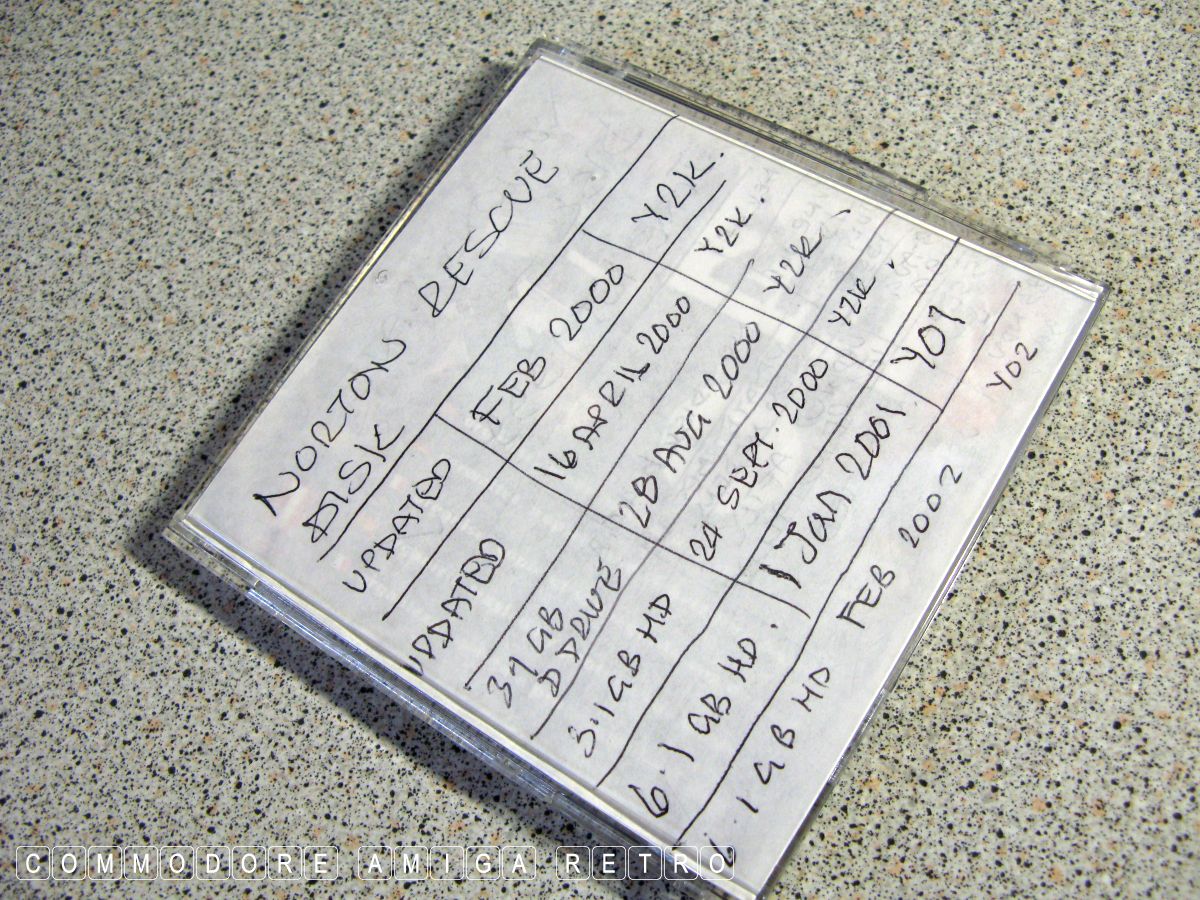 NORTON RESCUE
DISK
UPDATED FEB 2000 Y2K.
UPDATED 16 APRIL 2000 Y2K.
3.1 GB D DRIVE 28 AUG 2000 Y2K
3.1 GB HD 24 SEPT. 2000 Y2K.
6.1 GB HD. 1 JAN 2001 Y01
6.1 GB HD FEB 2002 Y02
COMMODORE AMIGA RETRO